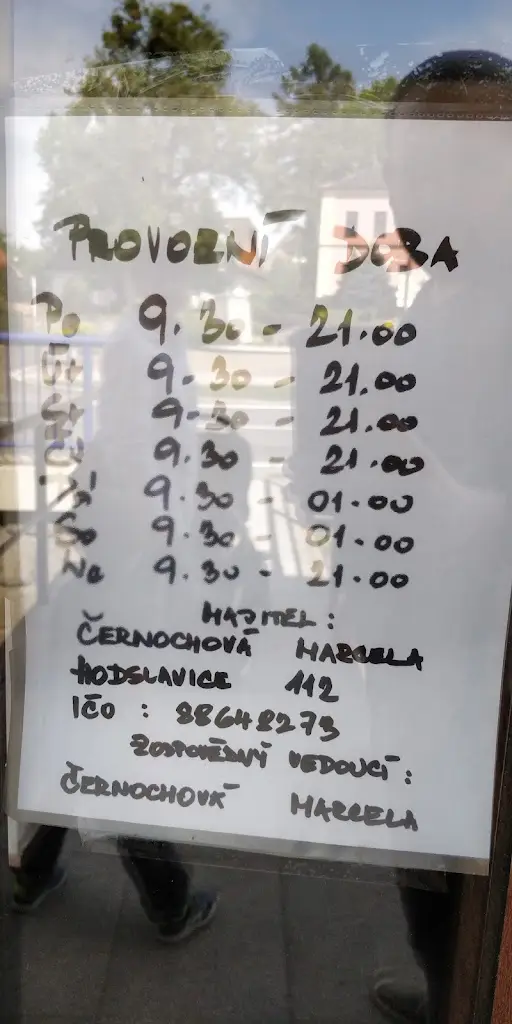 PROVOZNÍ DOBA
Po 9.30 - 21.00
Út 9.30 - 21.00
St 9.30 - 21.00
Čt 9.30 - 21.00
Pá 9.30 - 01.00
So 9.30 - 01.00
Ne 9.30 - 21.00
MAJITEL:
ČERNOCHOVÁ MARCELA
HODSLAVICE 112
IČO : 88648273
ZODPOVĚDNÝ VEDOUCÍ:
ČERNOCHOVÁ MARCELA